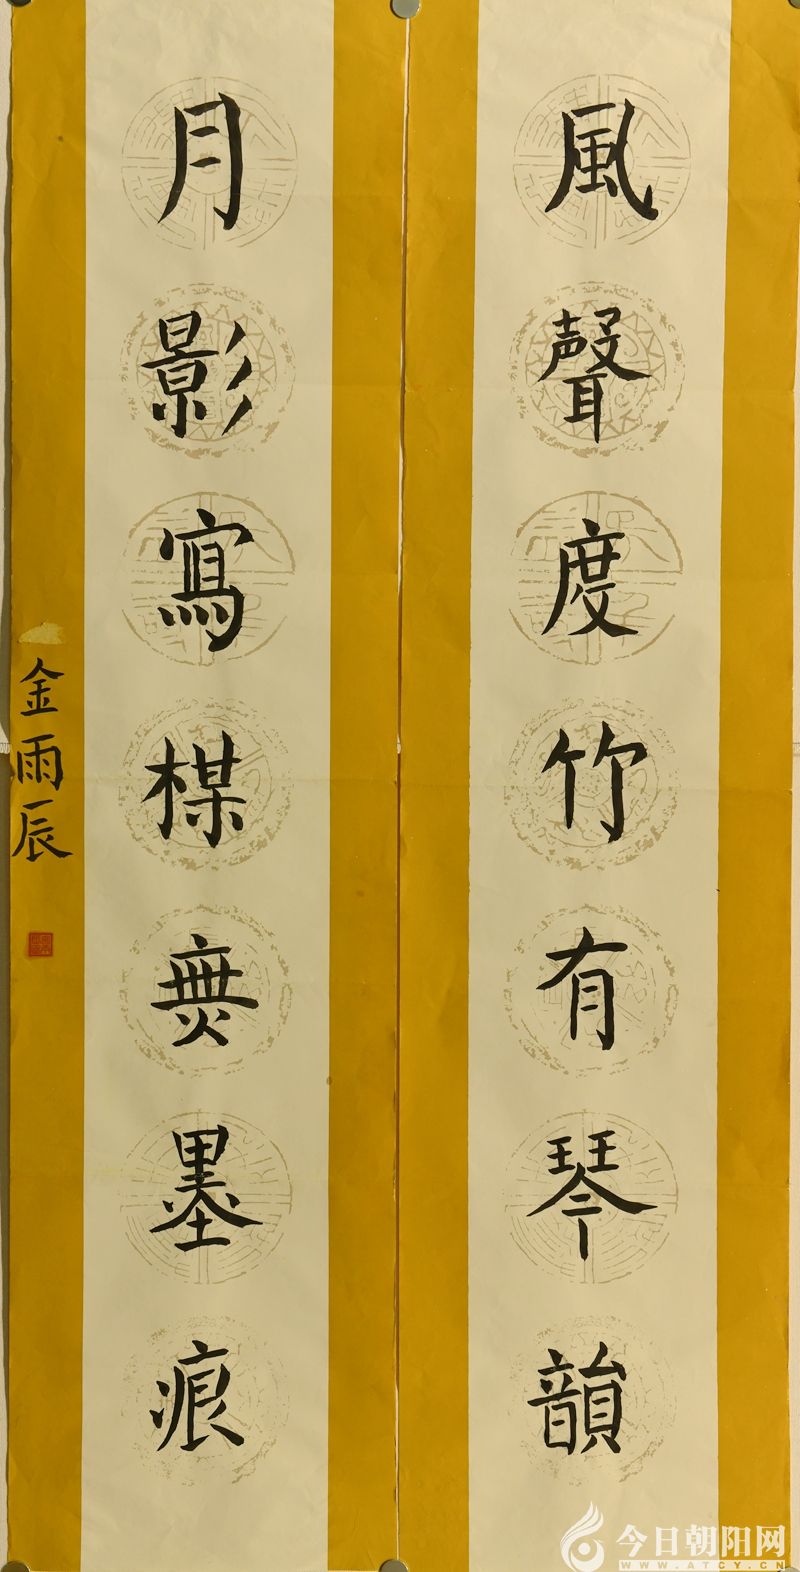 風聲度竹有琴韻
月影寫楳無墨痕
金雨辰
今日朝阳网
WWW.ATCY.CN